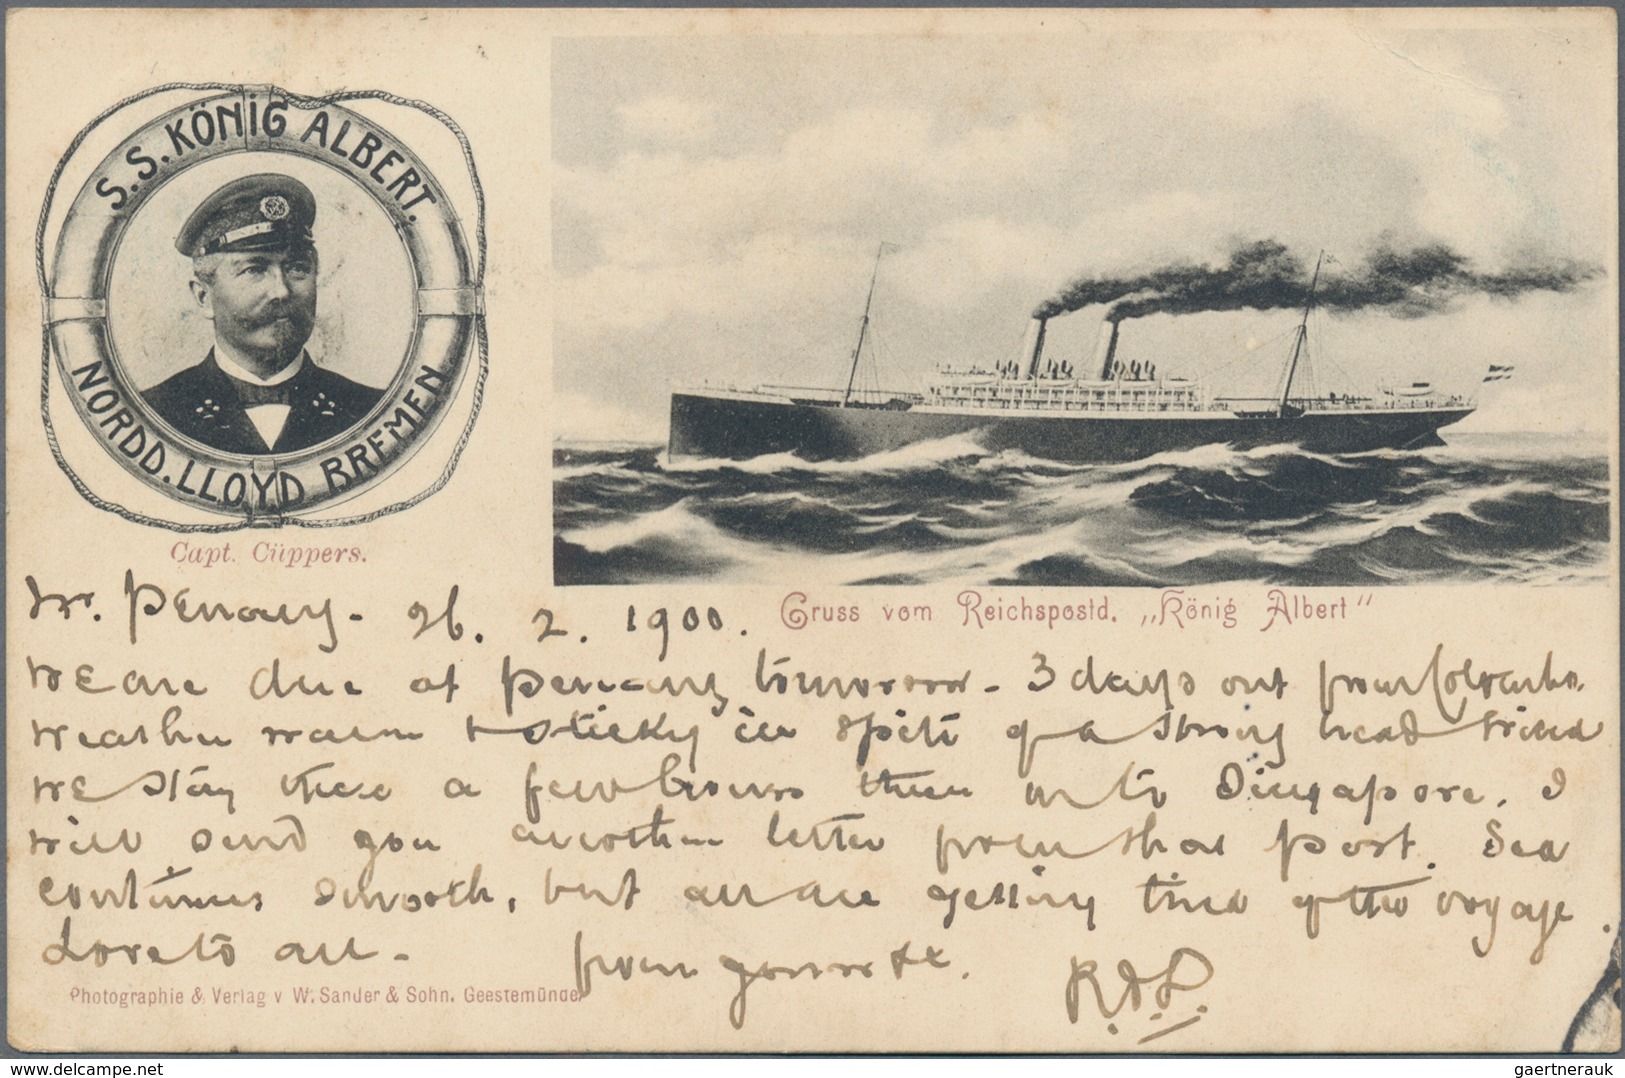 S.S. KÖNIG ALBERT.
NORDD. LLOYD BREMEN
Capt. Cüppers.
Gruss vom Reichspostd. „König Albert"
Nr. Penang - 26. 2. 1900.
We are due at Penang tomorrow - 3 days out from Colombo.
Weather warm & sticky in spite of a strong head wind
We stay there a few hours then on to Singapore. I
will send you another letter from that port. Sea
continues smooth, but all are getting tired of the voyage.
Love to all -
from yours xx.
R.J.L.
Photographie & Verlag v W. Sander & Sohn. Geestemünde
delcampe.net
gaertnerauk